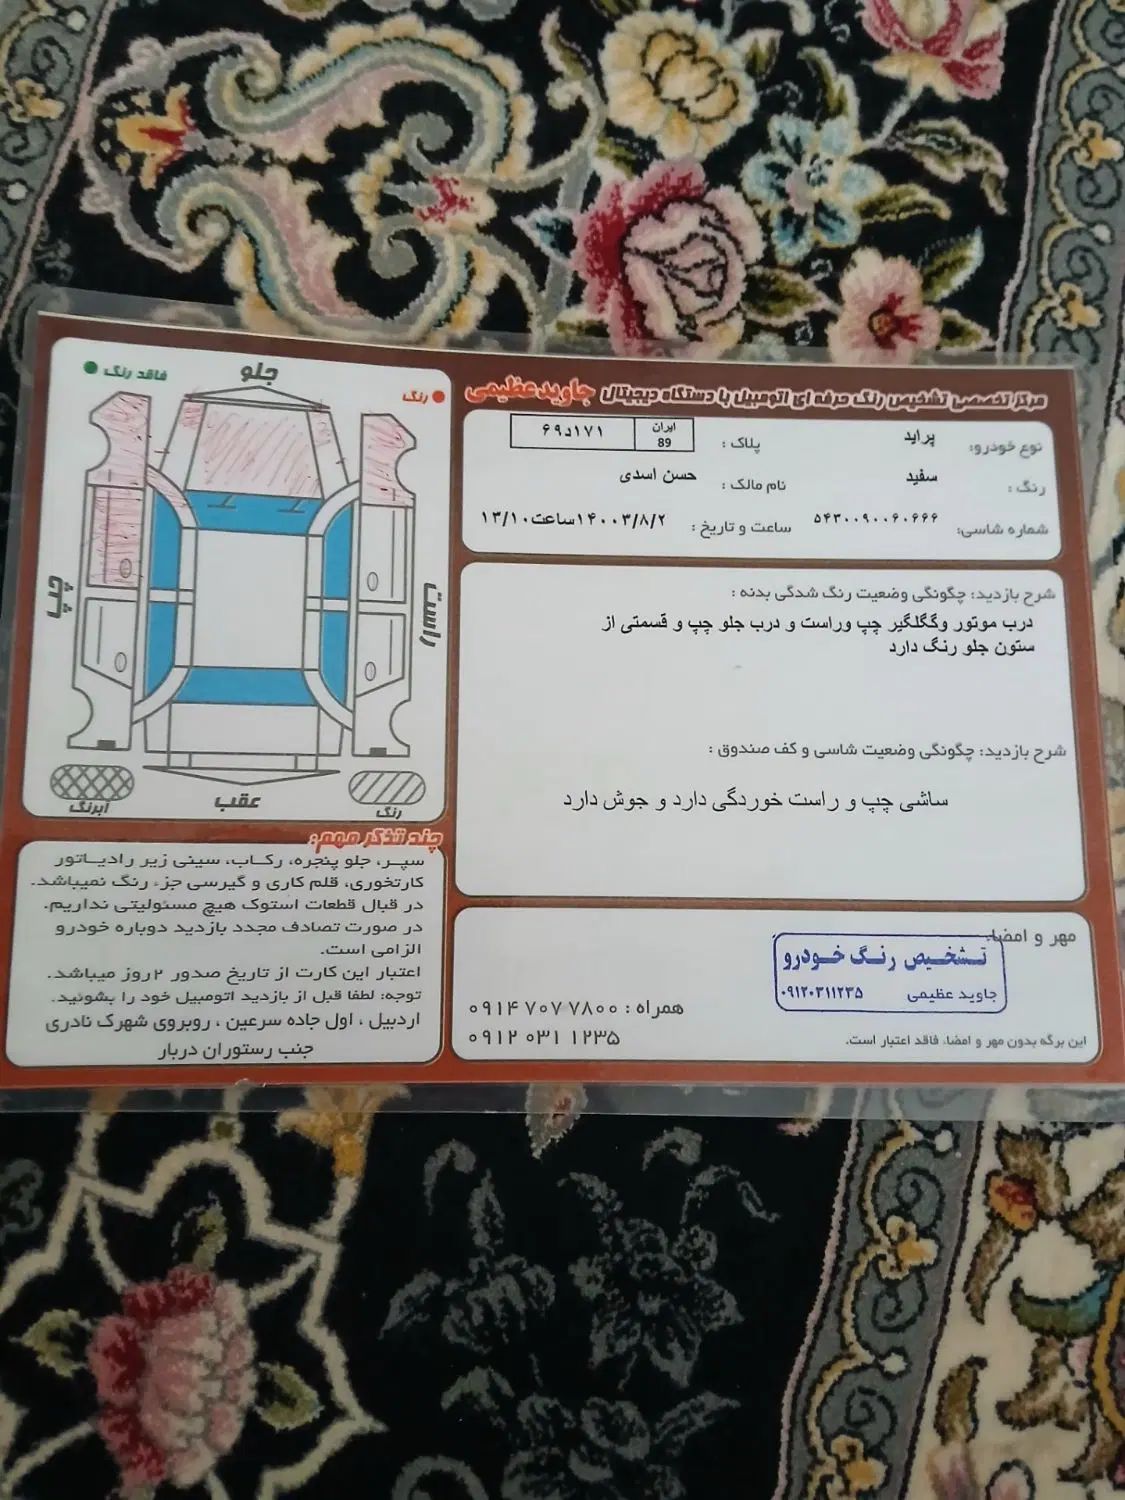 مرکز تخصصی تشخیص رنگ حرفه ای اتومبیل با دستگاه دیجیتال جاویدعظیمی
نوع خودرو: پراید
پلاک : ۱۷۱د۶۹ ایران 89
رنگ : سفید
نام مالک : حسن اسدی
شماره شاسی: ۵۴۳۰۰۹۰۰۶۰۶۶۶
ساعت و تاریخ : ۱۴۰۰۳/۸/۲ساعت۱۳/۱۰
شرح بازدید: چگونگی وضعیت رنگ شدگی بدنه :
درب موتور وگگلگیر چپ وراست و درب جلو چپ و قسمتی از
ستون جلو رنگ دارد
شرح بازدید: چگونگی وضعیت شاسی و کف صندوق :
ساشی چپ و راست خوردگی دارد و جوش دارد
مهر و امضا:
تشخیص رنگ خودرو
جاوید عظیمی ۰۹۱۲۰۳۱۱۲۳۵
همراه : ۰۹۱۴ ۷۰۷ ۷۸۰۰
۰۹۱۲ ۰۳۱ ۱۲۳۵
این برگه بدون مهر و امضا، فاقد اعتبار است.
رنگ
جلو
فاقد رنگ
راست
چپ
رنگ
عقب
آبرنگ
چند تذکر مهم:
سپر، جلو پنجره، رکاب، سینی زیر رادیاتور
کارتخوری، قلم کاری و گیرسی جزء رنگ نمیباشد.
در قبال قطعات استوک هیچ مسئولیتی نداریم.
در صورت تصادف مجدد بازدید دوباره خودرو
الزامی است.
اعتبار این کارت از تاریخ صدور ۲روز میباشد.
توجه: لطفا قبل از بازدید اتومبیل خود را بشوئید.
اردبیل ، اول جاده سرعین ، روبروی شهرک نادری
جنب رستوران دربار